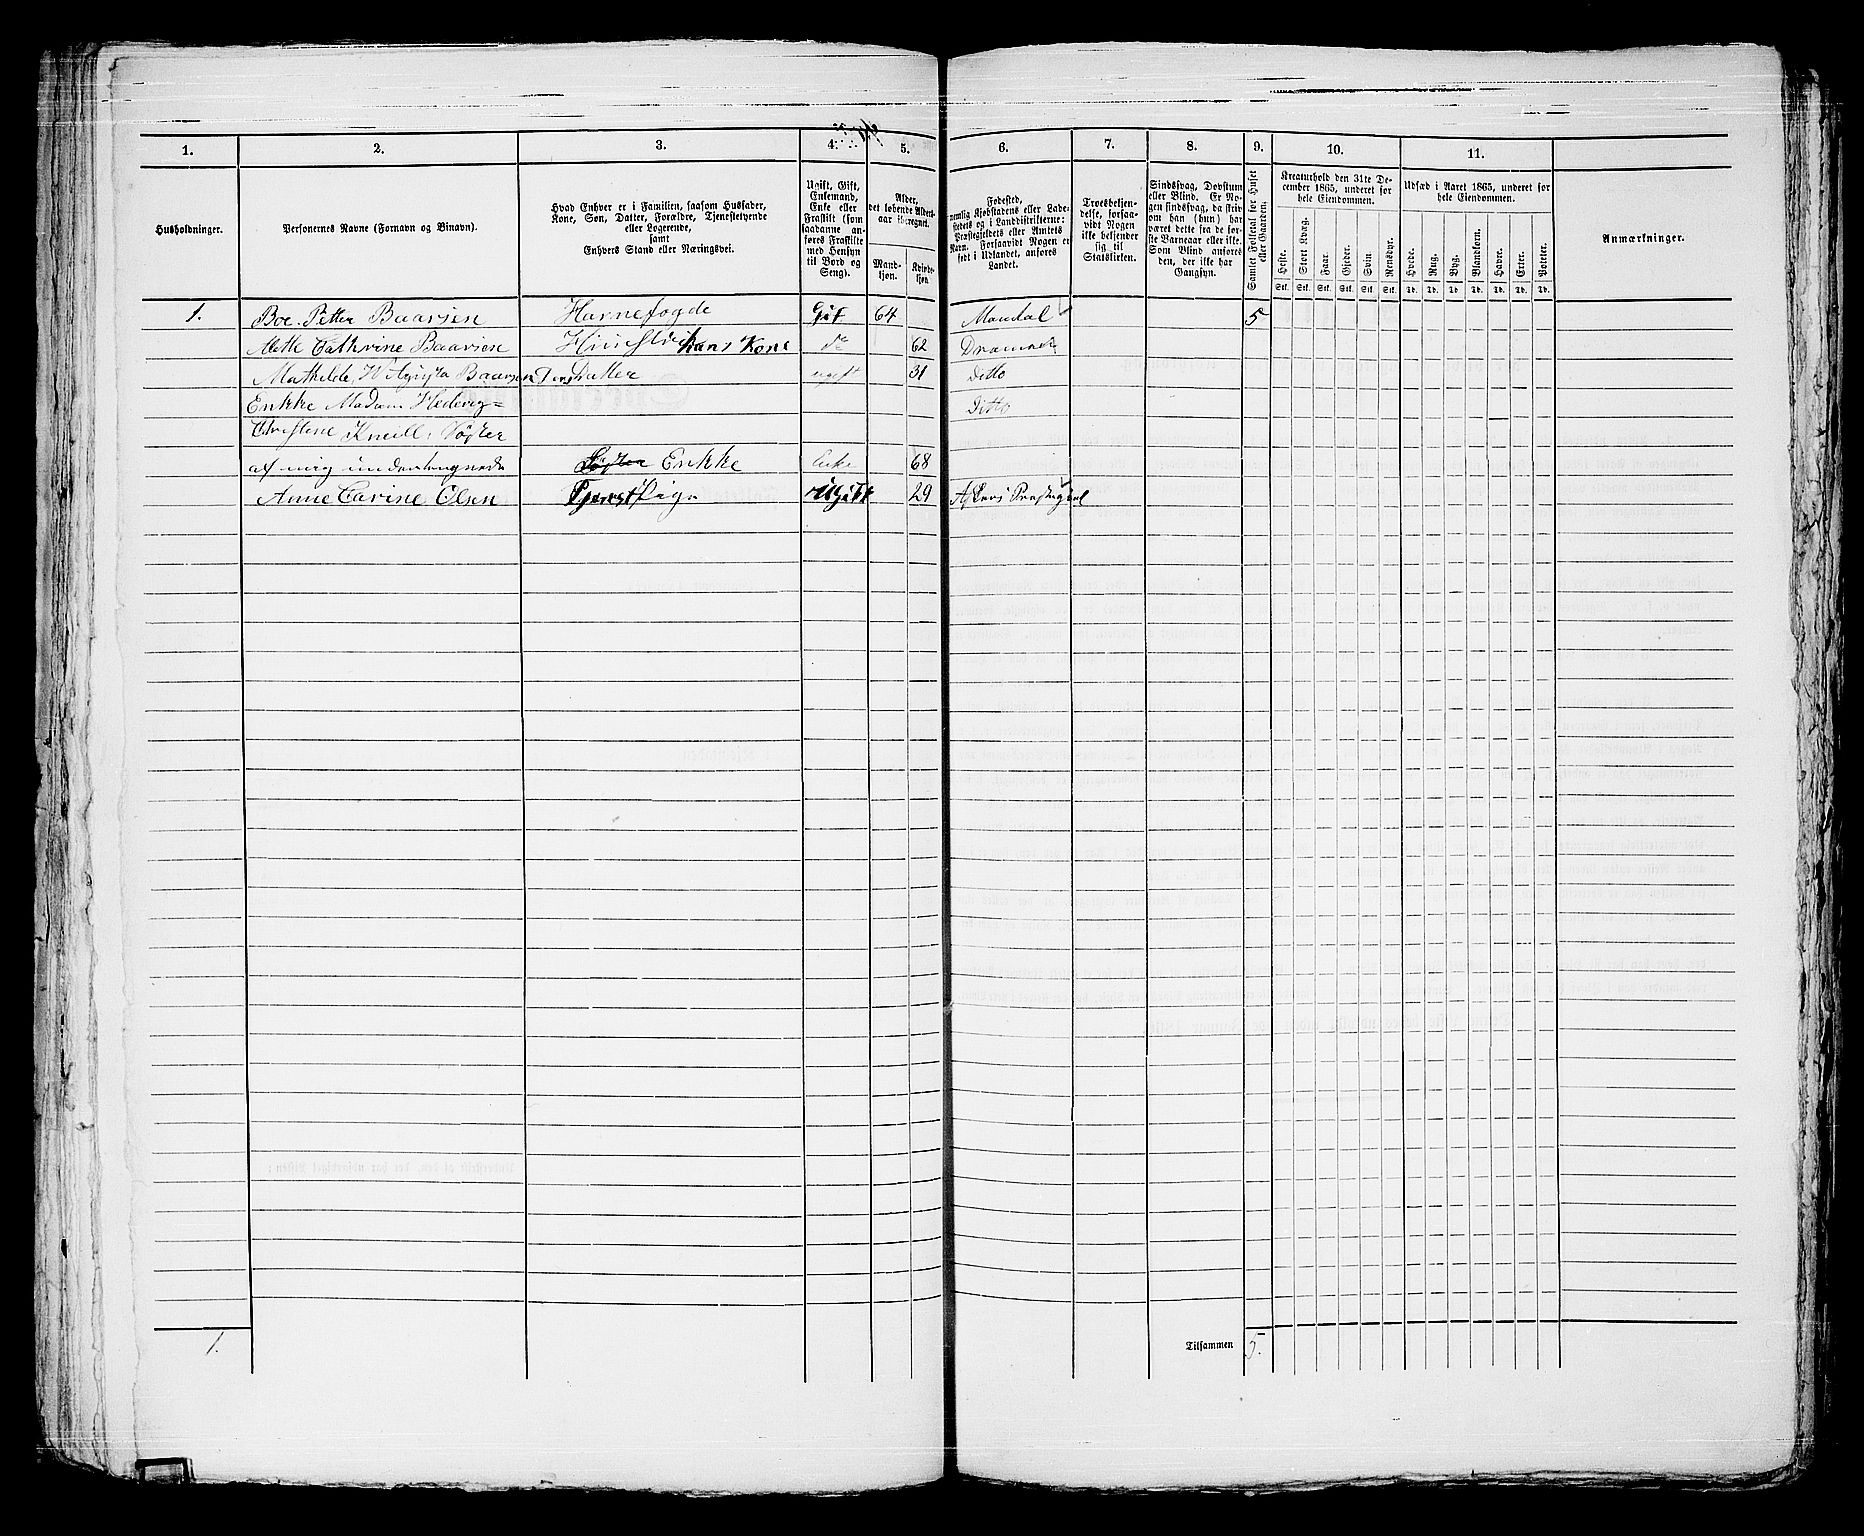 1. 2. 3. 4. 5. 6. 7. 8. 9. 10. 11.
Husholdninger.
Personernes Navne (Fornavn og Binavn).
Hvad Enhver er i Familien, saasom Husfader,
Kone, Søn, Datter, Forældre, Tjenstetyende
eller Logerende,
samt
Enhvers Stand eller Næringsvei.
Ugift, Gift,
Enkemand,
Enke eller
Fraskilt (som
saadanne an-
føres Fraskilte
med Hensyn
til Bord og
Seng).
Alder,
det løbende Alders-
aar iberegnet.
Mand-
kjøn.
Kvinde-
kjøn.
Fødested,
nemlig Kjøbstadens eller Lade-
stedets og i Landdistrikterne:
Præstegjeldets eller Amtets
Navn. Forsaavidt Nogen er
født i Udlandet, anføres
Landet.
Troesbekjen-
delse, forsaa-
vidt Nogen
ikke bekjender
sig til
Statskirken.
Sindssvag, Døvstum
eller Blind. Er No-
gen sindssvag, da skriv
om han (hun) har
været dette fra de før-
ste Barneaar eller ikke.
Som Blind anføres
den, der ikke har
Gangsyn.
Samlet Folketal for Huset
eller Gaarden.
Kreaturhold den 31te De-
cember 1865, underet for
hele Eiendommen.
Heste. Stort Kvæg. Faar. Gjeder. Svin. Rensdyr.
Stk. Stk. Stk. Stk. Stk. Stk.
Udsæd i Aaret 1865, underet for
hele Eiendommen.
Hvede. Rug. Byg. Blandkorn. Havre. Erter. Poteter.
Td. Td. Td. Td. Td. Td. Td.
Anmærkninger.
1. Boe Petter Baarsen Havnefogde Gift 64 Mandal 5
Mette Cathrine Baarsen hans Kone do 62 Drammen
Mathilde Baarsen Datter ugift 31 Ditto
Enkke Madam Hedevig= Ditto
Christene Kneill, Søster
af mig undertegnede Søster Enkke Enke 68
Anne Carine Olsen TjenstPige Ugift 29 Askers Præstegjæl
1. Tilsammen 5.